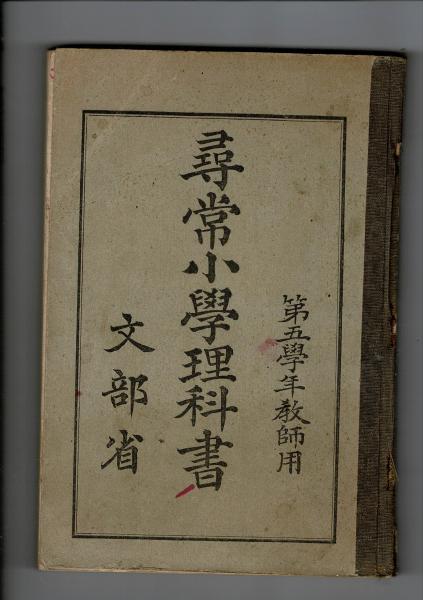 第五學年教師用
尋常小學理科書
文部省